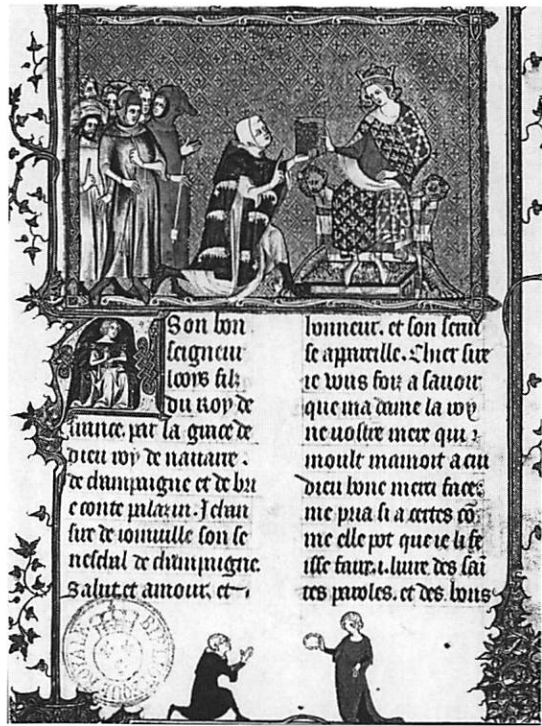 A Son bon
seigneur
looys filz
du roy de
france. par la grace de
dieu roy de nauarre.
de champaigne et de bri
e conte palazin. Jehan
sire de ioinuille son se
neschal de champaigne.
Salut et amour. et
honneur. et son serui
se appareille. Chier sire
ie vous foiz a sauoir
que ma dame la roy
ne uostre mere qui
moult mamoit a cui
dieu bone merci face.
me pria si a certes cõ
me elle pot que ie li fe
isse faire .i. liure des saĩ
tes paroles. et des bons